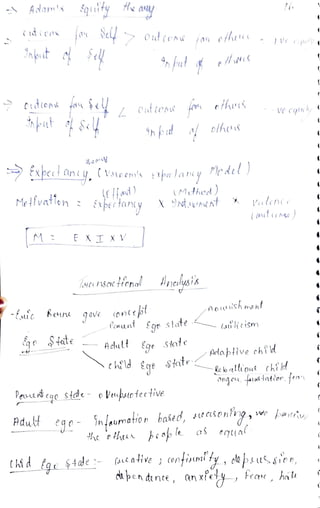 → Adam's Equity theory
→ outcome for Self > outcome for others - +ve equity
Input of Self Input of others
→ outcome for Self < outcome for others - -ve equity
Input of Self Input of others
⇒ Expectancy (Vroom's expectancy Model)
(Effort) (Method)
Motivation = Expectancy × Instrument × Valence
(outcome)
M = E X I X V
Transactional Analysis
- Eric Berne gave concept
nourishment
Parent Ego state
criticism
Ego State Adult Ego state
Child Ego State Adaptive child
Rebellious child
anger, frustration, fear
Parent ego state - overprotective
Adult ego - Information based, reasoning, we
the other people as equal
Child Ego State :- creative, confirmity, depression,
dependence, anxiety, Fear, hate